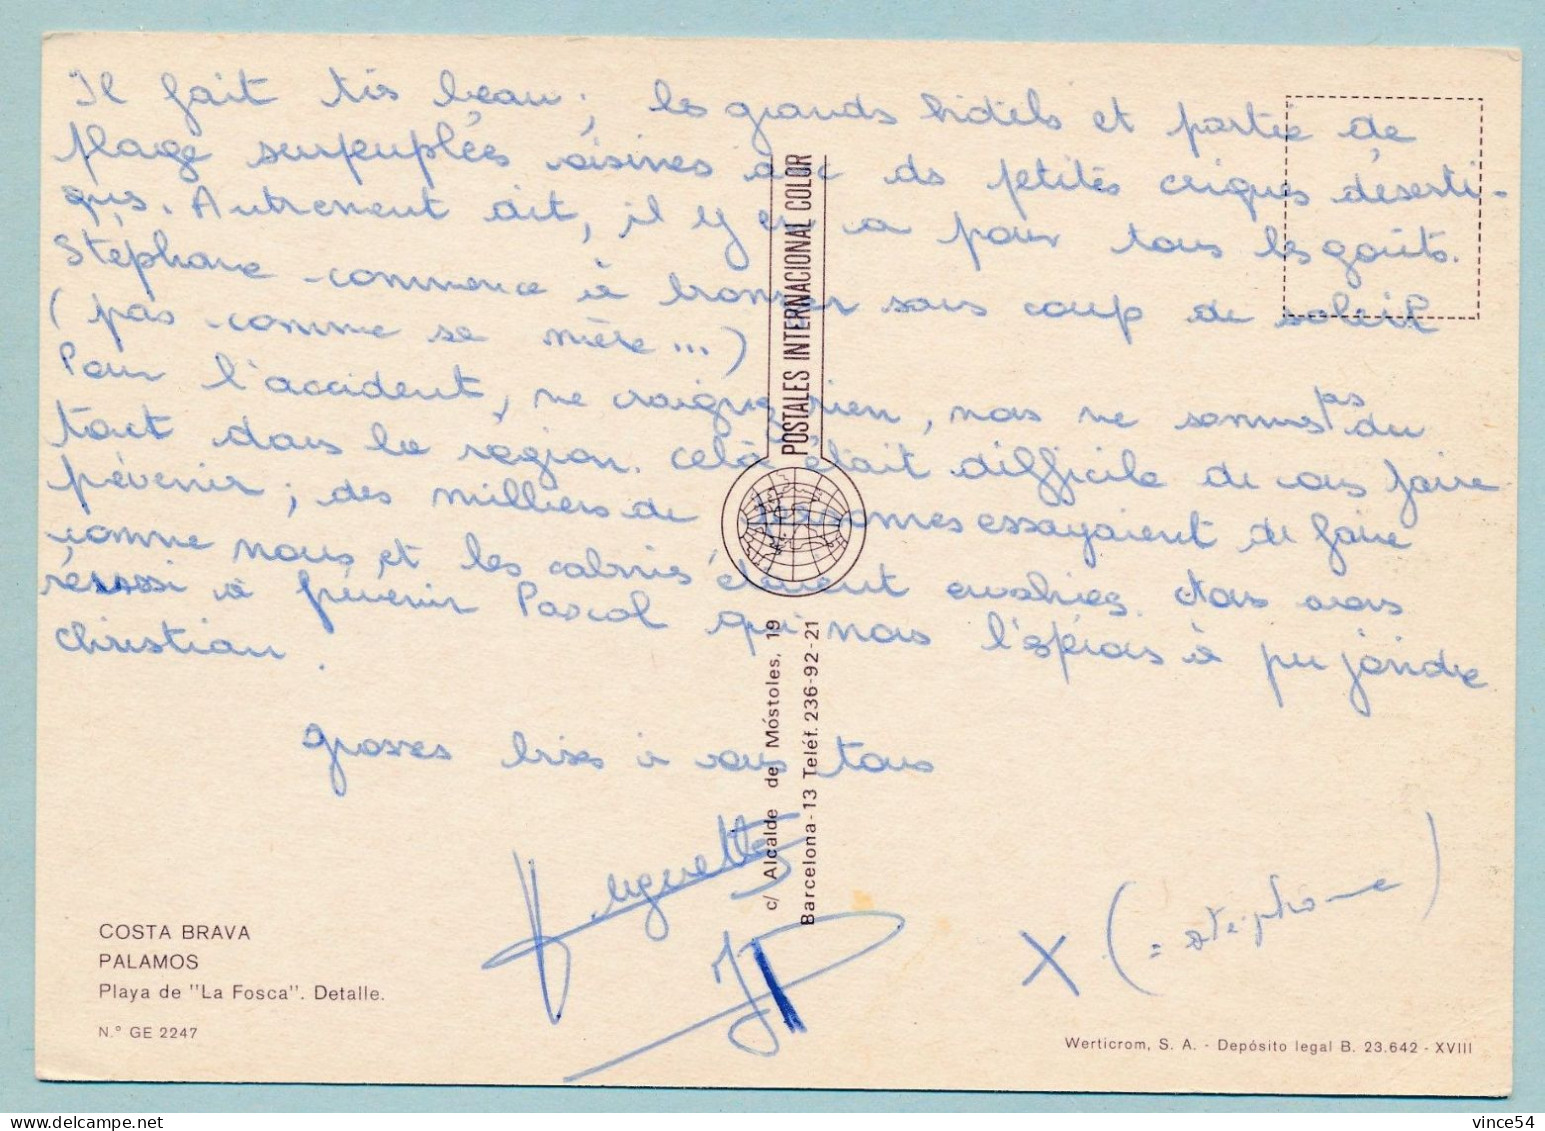 Il fait très beau; les grands hôtels et partie de
plage surpeuplées voisines avec ds petites criques déserti-
ques. Autrement dit, il y en a pour tous les goûts.
Stéphane commence à bronzer sans coup de soleil
(pas comme se mère...)
Pour l'accident, ne craignez rien, nous ne sommes pas du
tout dans la région. Celà était difficile de vous faire
prévenir; des milliers de personnes essayaient de faire
comme nous, et les cabines étaient envahies. Nous avons
réussi à prévenir Pascal qui nous l'espérons à pu joindre
Christian.
grosses bises à vous tous
Huguette
JP
X (= stéphane)
POSTALES INTERNACIONAL COLOR
c/ Alcalde de Móstoles, 19
Barcelona-13 Teléf. 236-92-21
COSTA BRAVA
PALAMOS
Playa de "La Fosca". Detalle.
N.° GE 2247
Werticrom, S. A. - Depósito legal B. 23.642 - XVIII
vince54